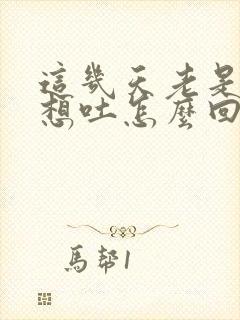 這幾天老是
想吐怎麼回
馬幫1